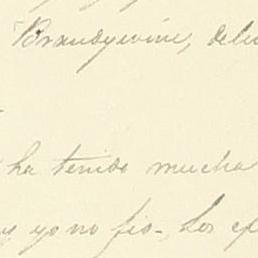 Brandywine,
ha tenido mucha
yo no fio-, Los